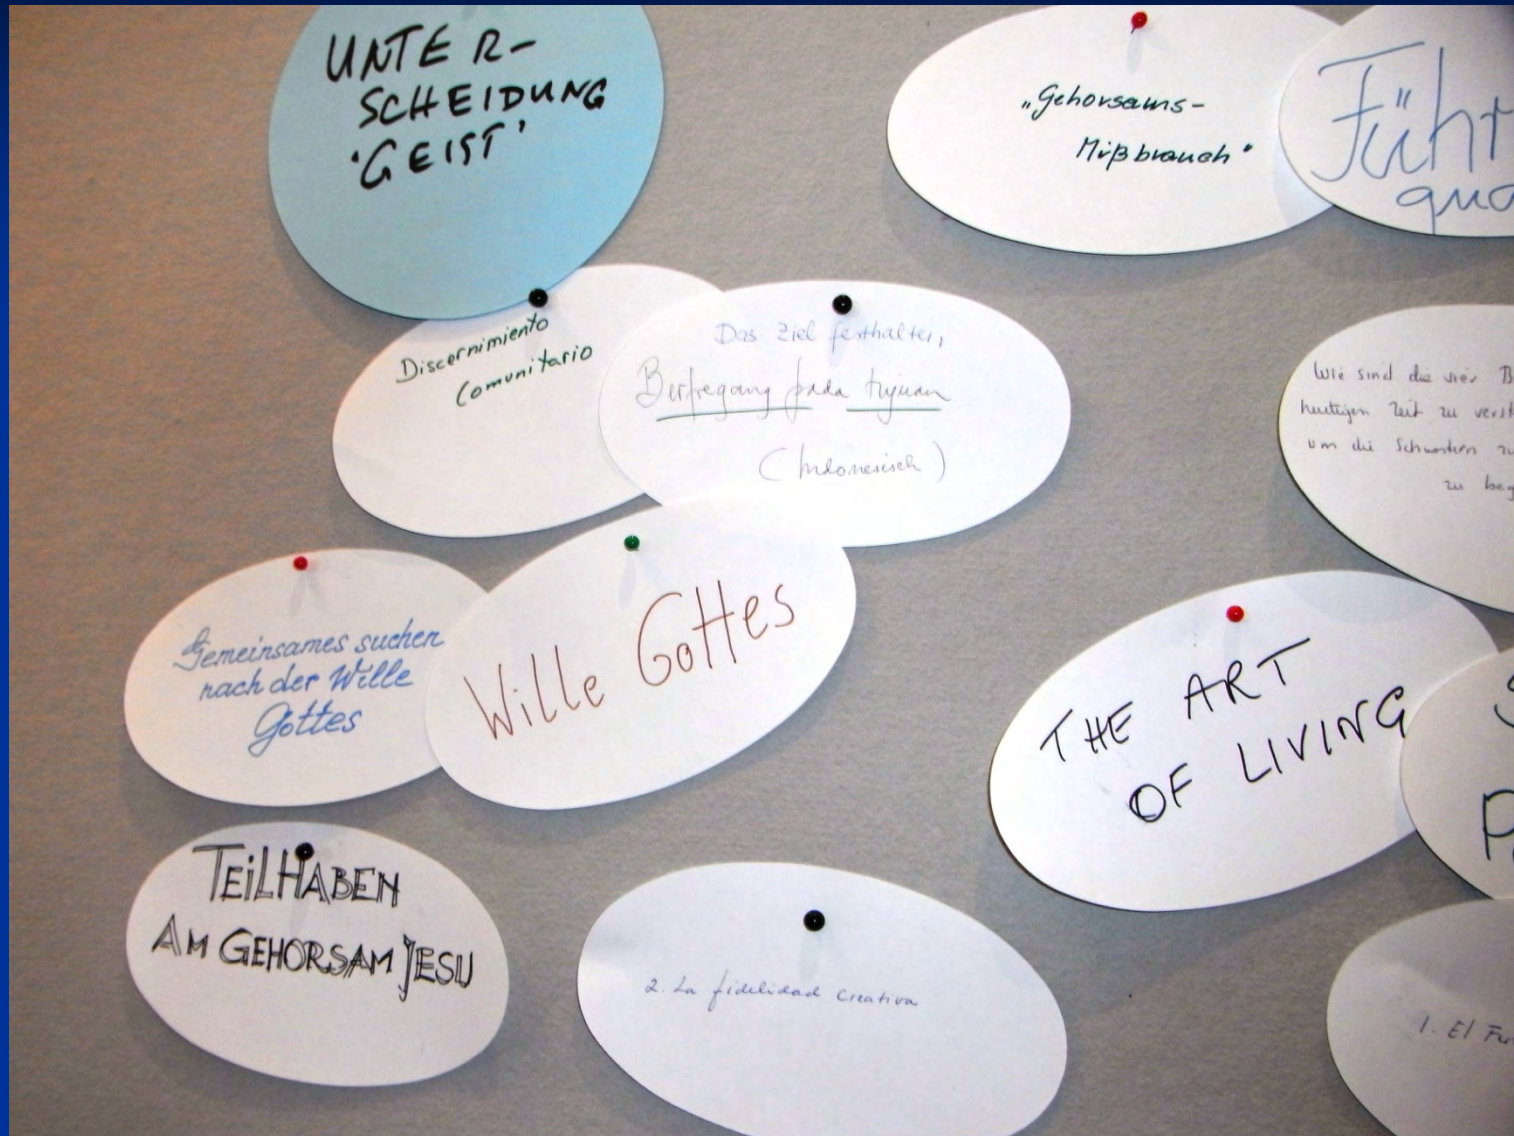 UNTER-
SCHEIDUNG
'GEIST'
„Gehorsams-
Mißbrauch"
Discernimiento
Comunitario
Das Ziel festhalten,
Berpegang pada tujuan
(Indonesisch)
Wie sind die vier
heutigen Zeit zu
um die Schwestern
zu
Gemeinsames suchen
nach der Wille
Gottes
Wille Gottes
THE ART
OF LIVING
TEILHABEN
AM GEHORSAM JESU
2. La fidelidad creativa
1. El